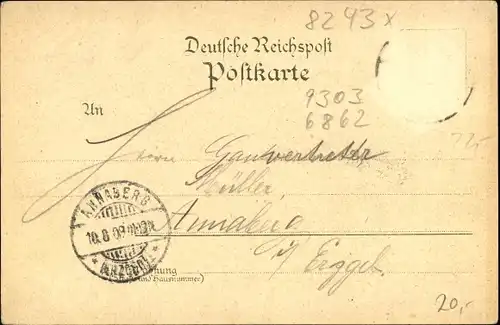 8243x
Deutsche Reichspost
Postkarte
9303
6862
An
72,-
Herrn Gauvertreter
Müller,
Annaberg
i/ Erzgeb.
ANNABERG
(ERZGEB.)
Wohnung
(Straße und Hausnummer)
20,-